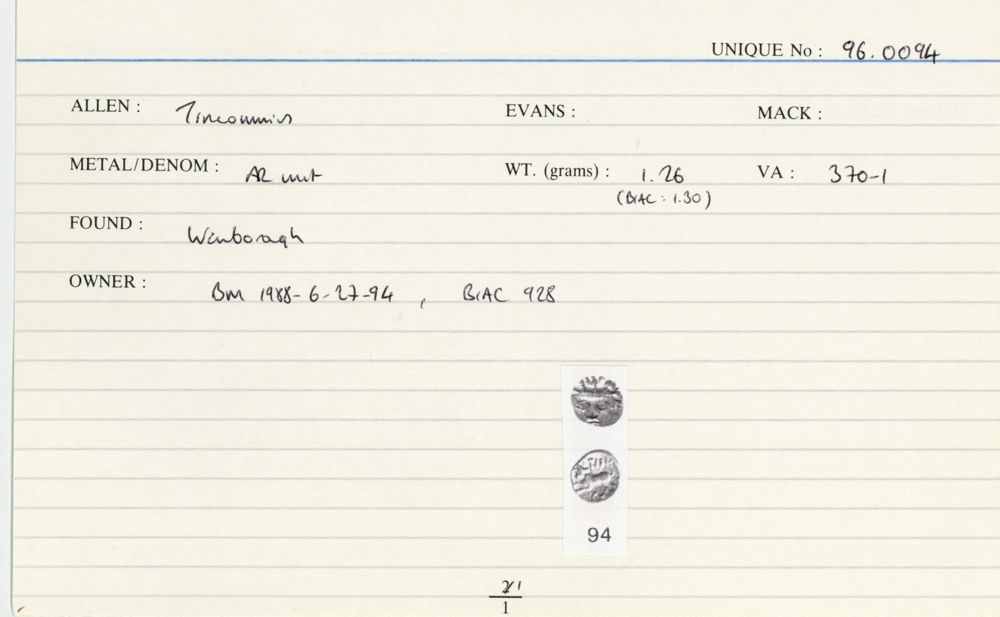 UNIQUE No : 96.0094
ALLEN : Tincommius EVANS : MACK :
METAL/DENOM : AR unit WT. (grams) : 1.26 VA : 370-1
(BIAC : 1.30)
FOUND : Wanborough
OWNER : BM 1988-6-27-94 , BIAC 928
94
1